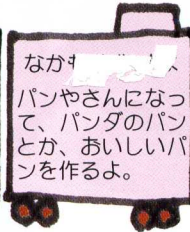 なか
パンやさんになっ
て、パンダのパン
とか、おいしいパ
ンを作るよ。